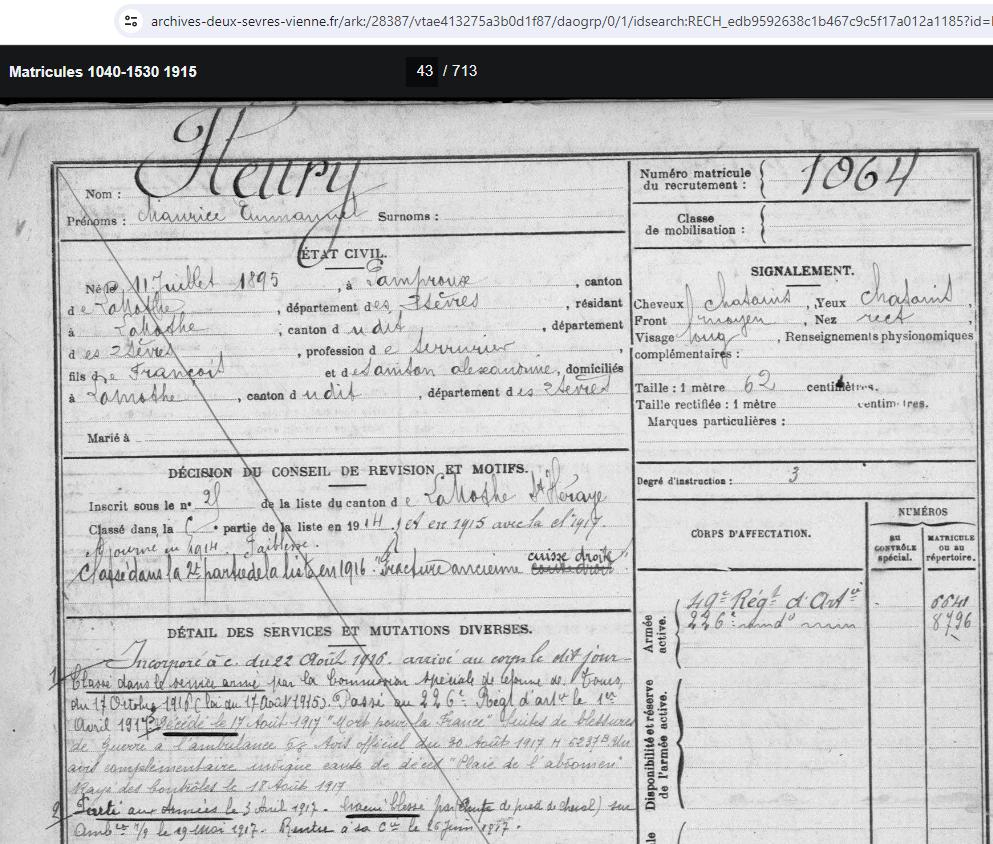 archives-deux-sevres-vienne.fr/ark:/28387/vtae413275a3b0d1f87/daogrp/0/1/idsearch:RECH_edb9592638c1b467c9c5f17a012a1185?id=
Matricules 1040-1530 1915
43 / 713
Fleury
Nom :
Prénoms : Maurice Emmanuel Surnoms :
Numéro matricule du recrutement : 1064
Classe de mobilisation :
ÉTAT CIVIL.
Né le 11 Juillet 1895, à Lamproux, canton
de LaMothe, département des 2 Sèvres, résidant
à LaMothe, canton dudit, département
des 2 Sèvres, profession de serrurier,
fils de François et de Samson alexandrine, domiciliés
à Lamothe, canton dudit, département des 2 Sèvres
Marié à
SIGNALEMENT.
Cheveux chatains, Yeux chatains,
Front moyen, Nez rect,
Visage long, Renseignements physionomiques
complémentaires :
Taille : 1 mètre 62 centimètres.
Taille rectifiée : 1 mètre centimètres.
Marques particulières :
Degré d'instruction : 3
DÉCISION DU CONSEIL DE REVISION ET MOTIFS.
Inscrit sous le n° de la liste du canton de LaMothe St Héraye
Classé dans la 5e partie de la liste en 1914, et en 1915 avec la cl 1917.
Ajourné en 1914. Faiblesse.
Classé dans la 2e partie de la liste en 1916. Fracture ancienne cuisse droite
CORPS D'AFFECTATION.
NUMÉROS
AU CONTRÔLE spécial.
MATRICULE OU AU répertoire.
Armée active.
49e Régt d'Artie 6641
226e 8796
Disponibilité et réserve de l'armée active.
DÉTAIL DES SERVICES ET MUTATIONS DIVERSES.
Incorporé à c. du 22 Août 1916. arrivé au corps le dit jour
1 Classé dans le service armé par la Commission spéciale de réforme de Tours,
du 17 Octobre 1916 (loi du 17 Août 1915). Passé au 226e Régt d'artie le 1er
Avril 1917. Décédé le 17 Août 1917 "Mort pour la France" Suites de blessures
de Guerre à l'ambulance Avis officiel du 30 Août 1917 Un
avis complémentaire indique cause de décès "Plaie de l'abdomen"
Rayé des contrôles le 18 Août 1917
2 aux Armées le 3 Avril 1917. Evacué blessé par (chute de pied de cheval) sur
Ambce le 19 Mai 1917. Rentré à sa Cie le